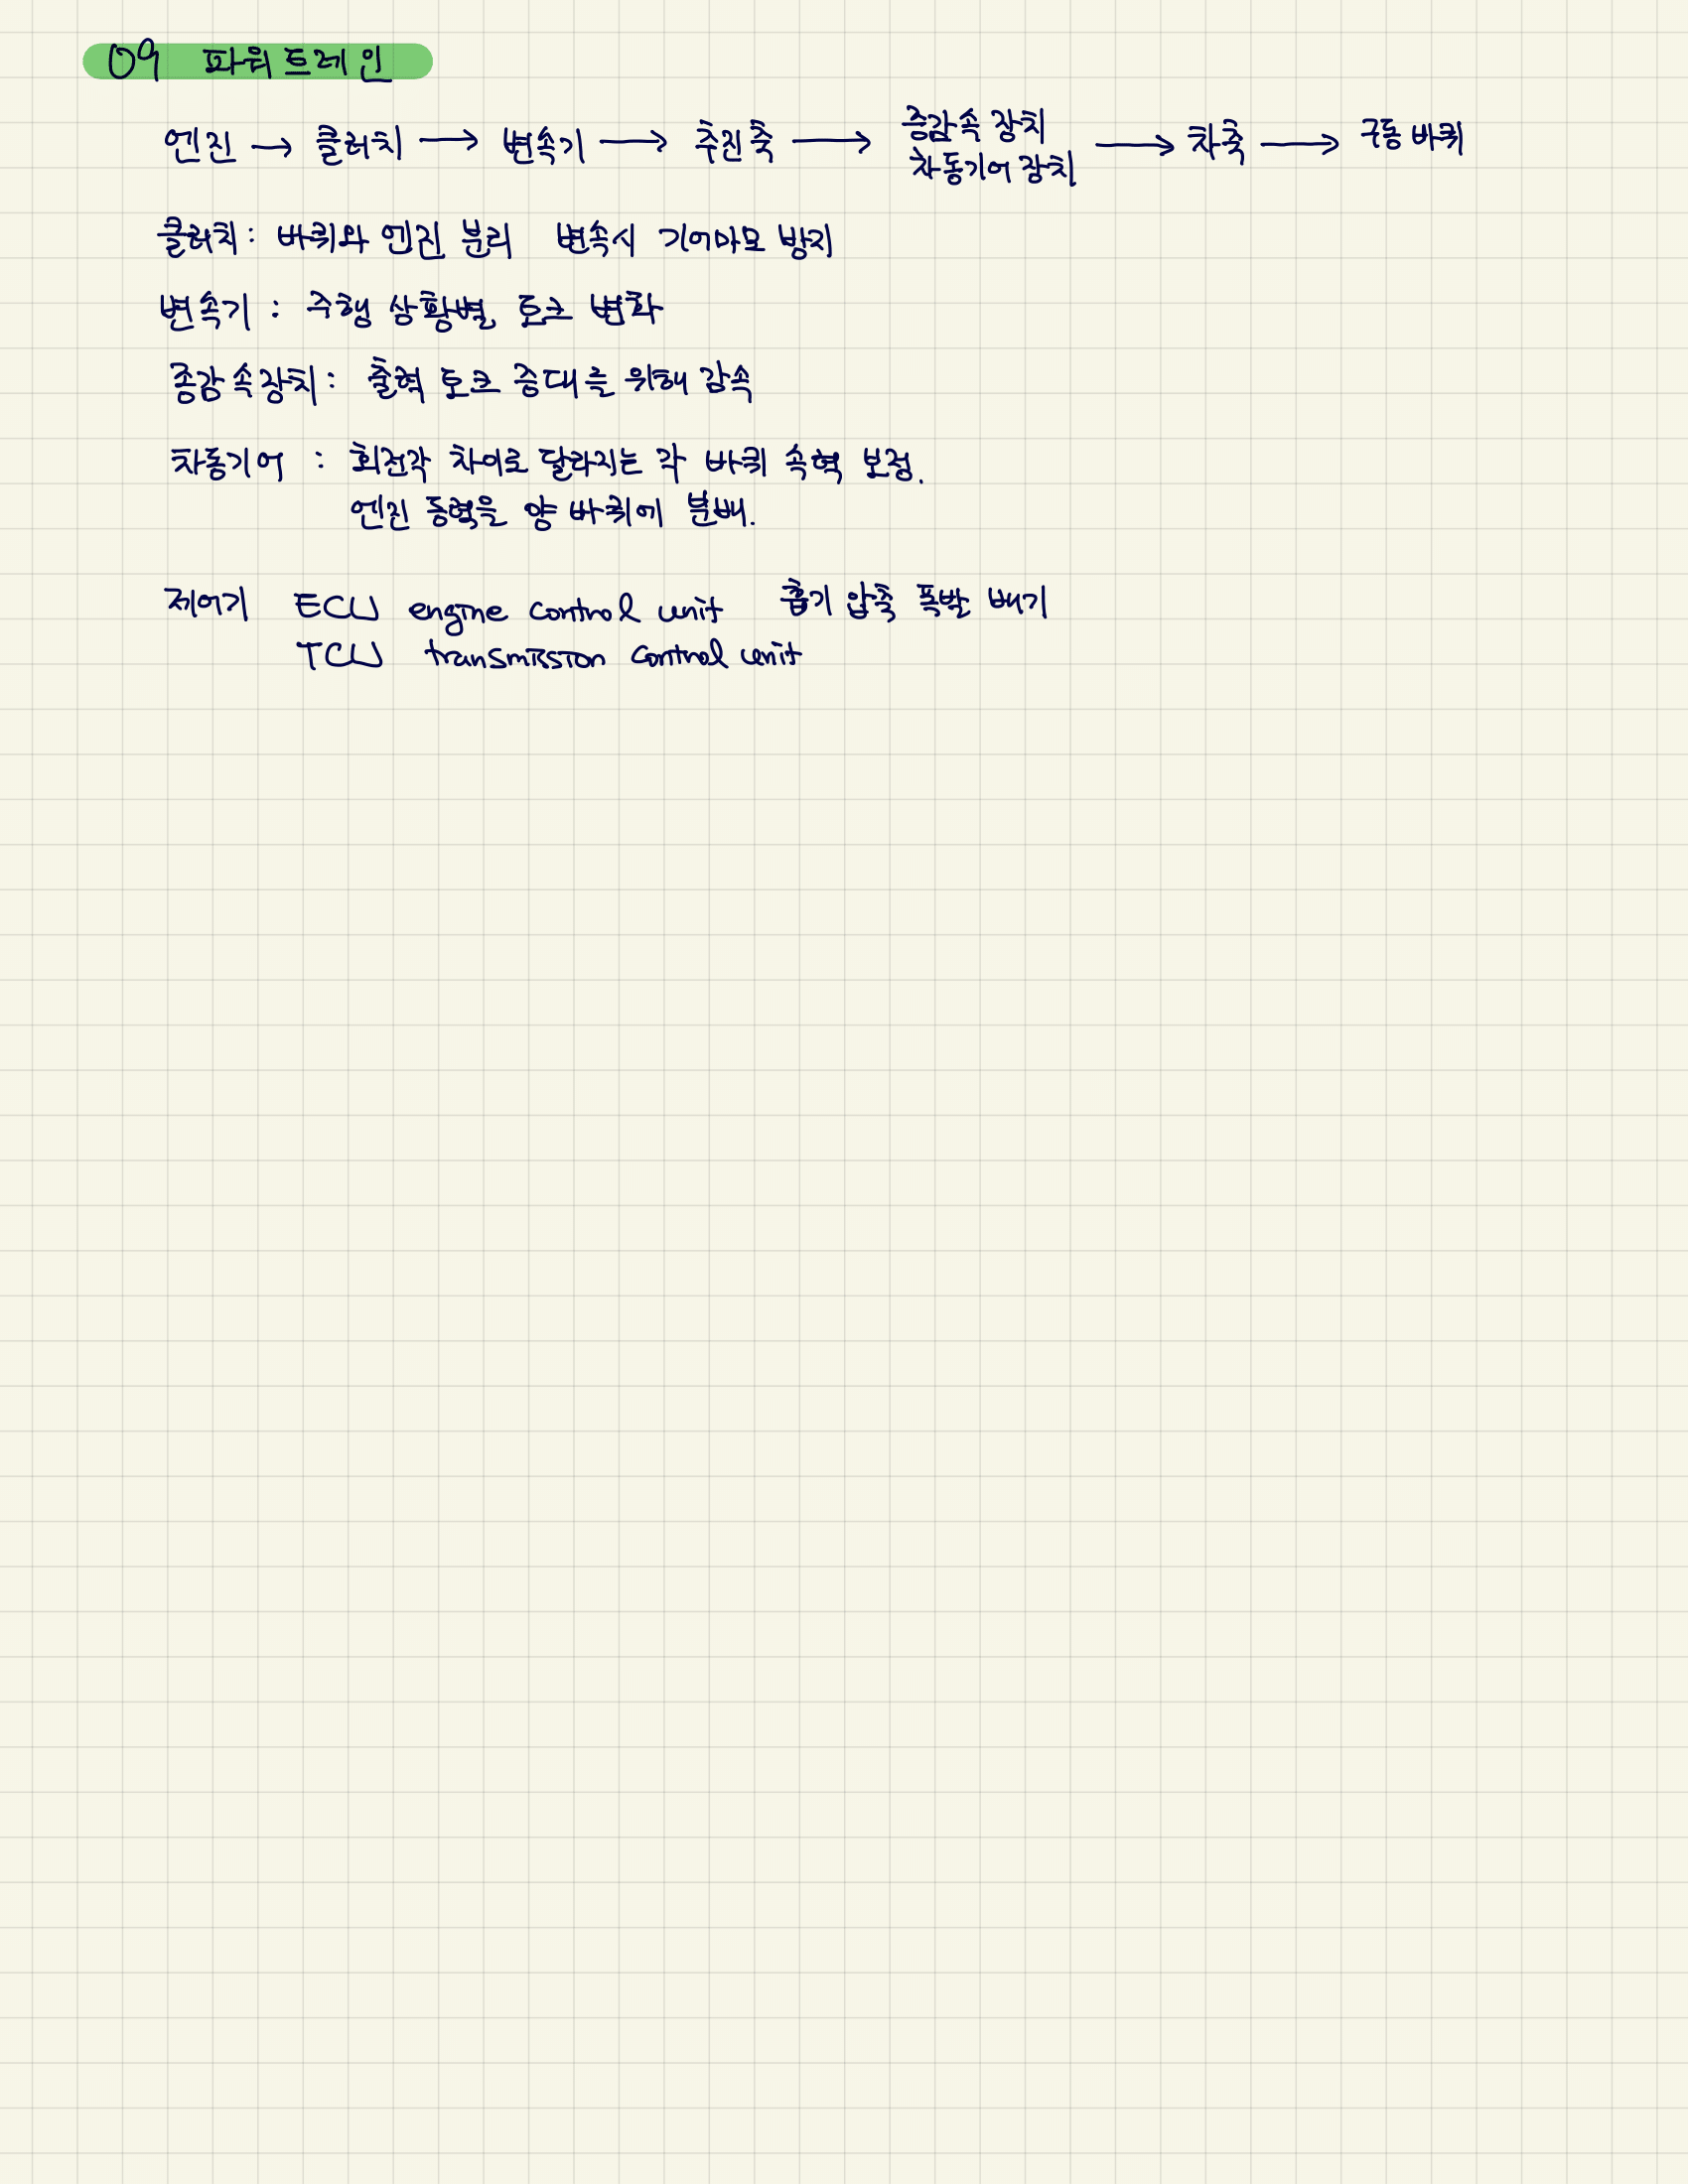 09 파워트레인
엔진 → 클러치 → 변속기 → 추진축 → 종감속 장치 차동기어 장치 → 차축 → 구동 바퀴
클러치 : 바퀴와 엔진 분리 변속시 기어마모 방지
변속기 : 주행 상황별 토크 변화
종감속장치 : 출력 토크 증대를 위해 감속
차동기어 : 회전각 차이로 달라지는 각 바퀴 속력 보정.
엔진 동력을 양 바퀴에 분배.
제어기 ECU engine control unit 흡기 압축 폭발 배기
TCU transmission control unit